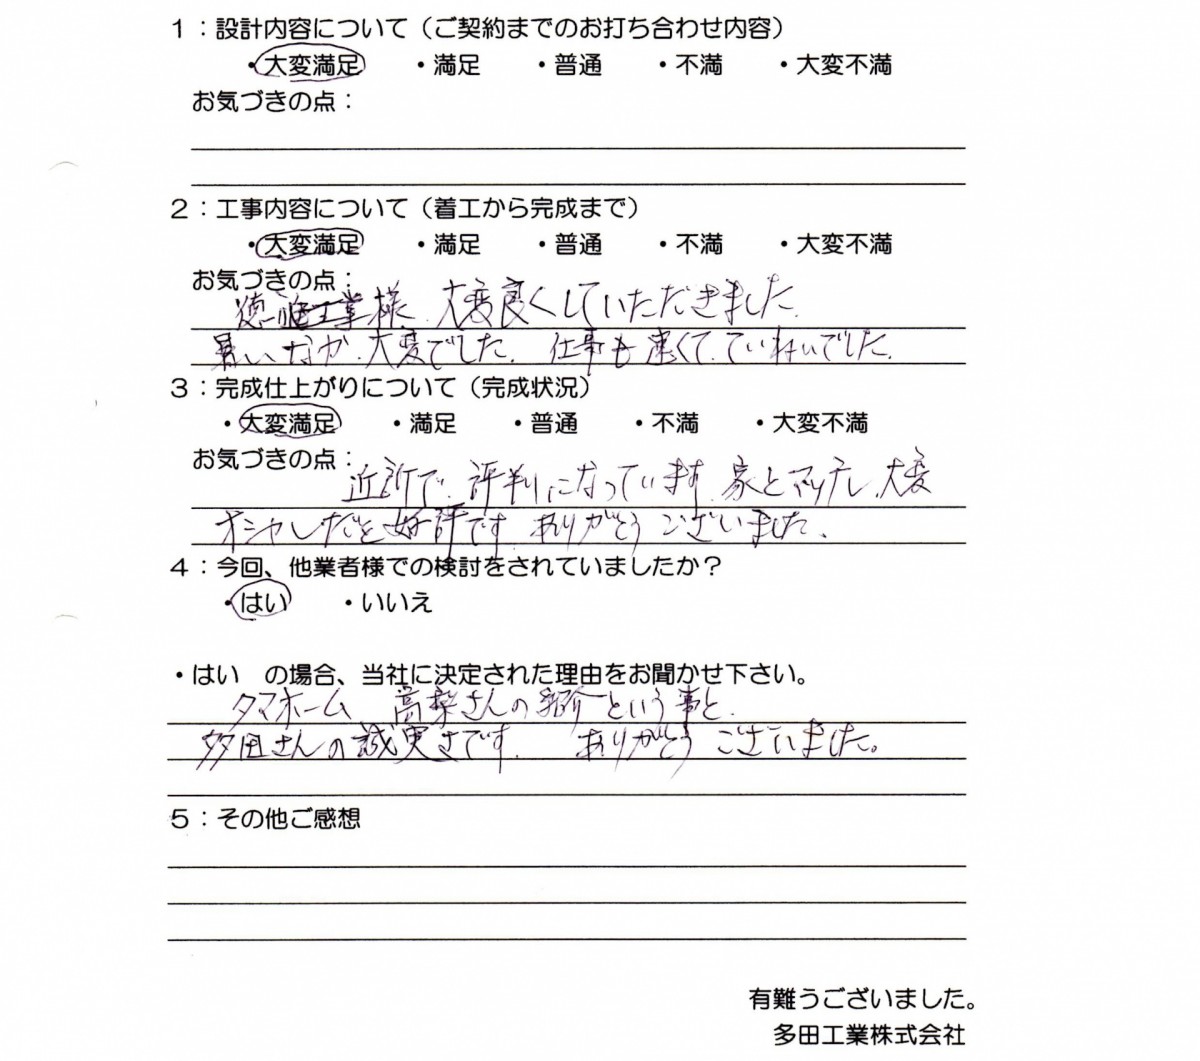 1：設計内容について（ご契約までのお打ち合わせ内容）
・大変満足 ・満足 ・普通 ・不満 ・大変不満
お気づきの点：
2：工事内容について（着工から完成まで）
・大変満足 ・満足 ・普通 ・不満 ・大変不満
お気づきの点：
工業様、大変良くしていただきました。
暑いなか、大変でした。仕事も速くて、ていねいでした。
3：完成仕上がりについて（完成状況）
・大変満足 ・満足 ・普通 ・不満 ・大変不満
お気づきの点：
近所で、評判になっています。家とマッチし、大変
オシャレだと好評です。ありがとうございました。
4：今回、他業者様での検討をされていましたか？
・はい ・いいえ
・はい　の場合、当社に決定された理由をお聞かせ下さい。
タマホーム　高梨さんの紹介という事と、
多田さんの誠実さです。　ありがとうございました。
5：その他ご感想
有難うございました。
多田工業株式会社